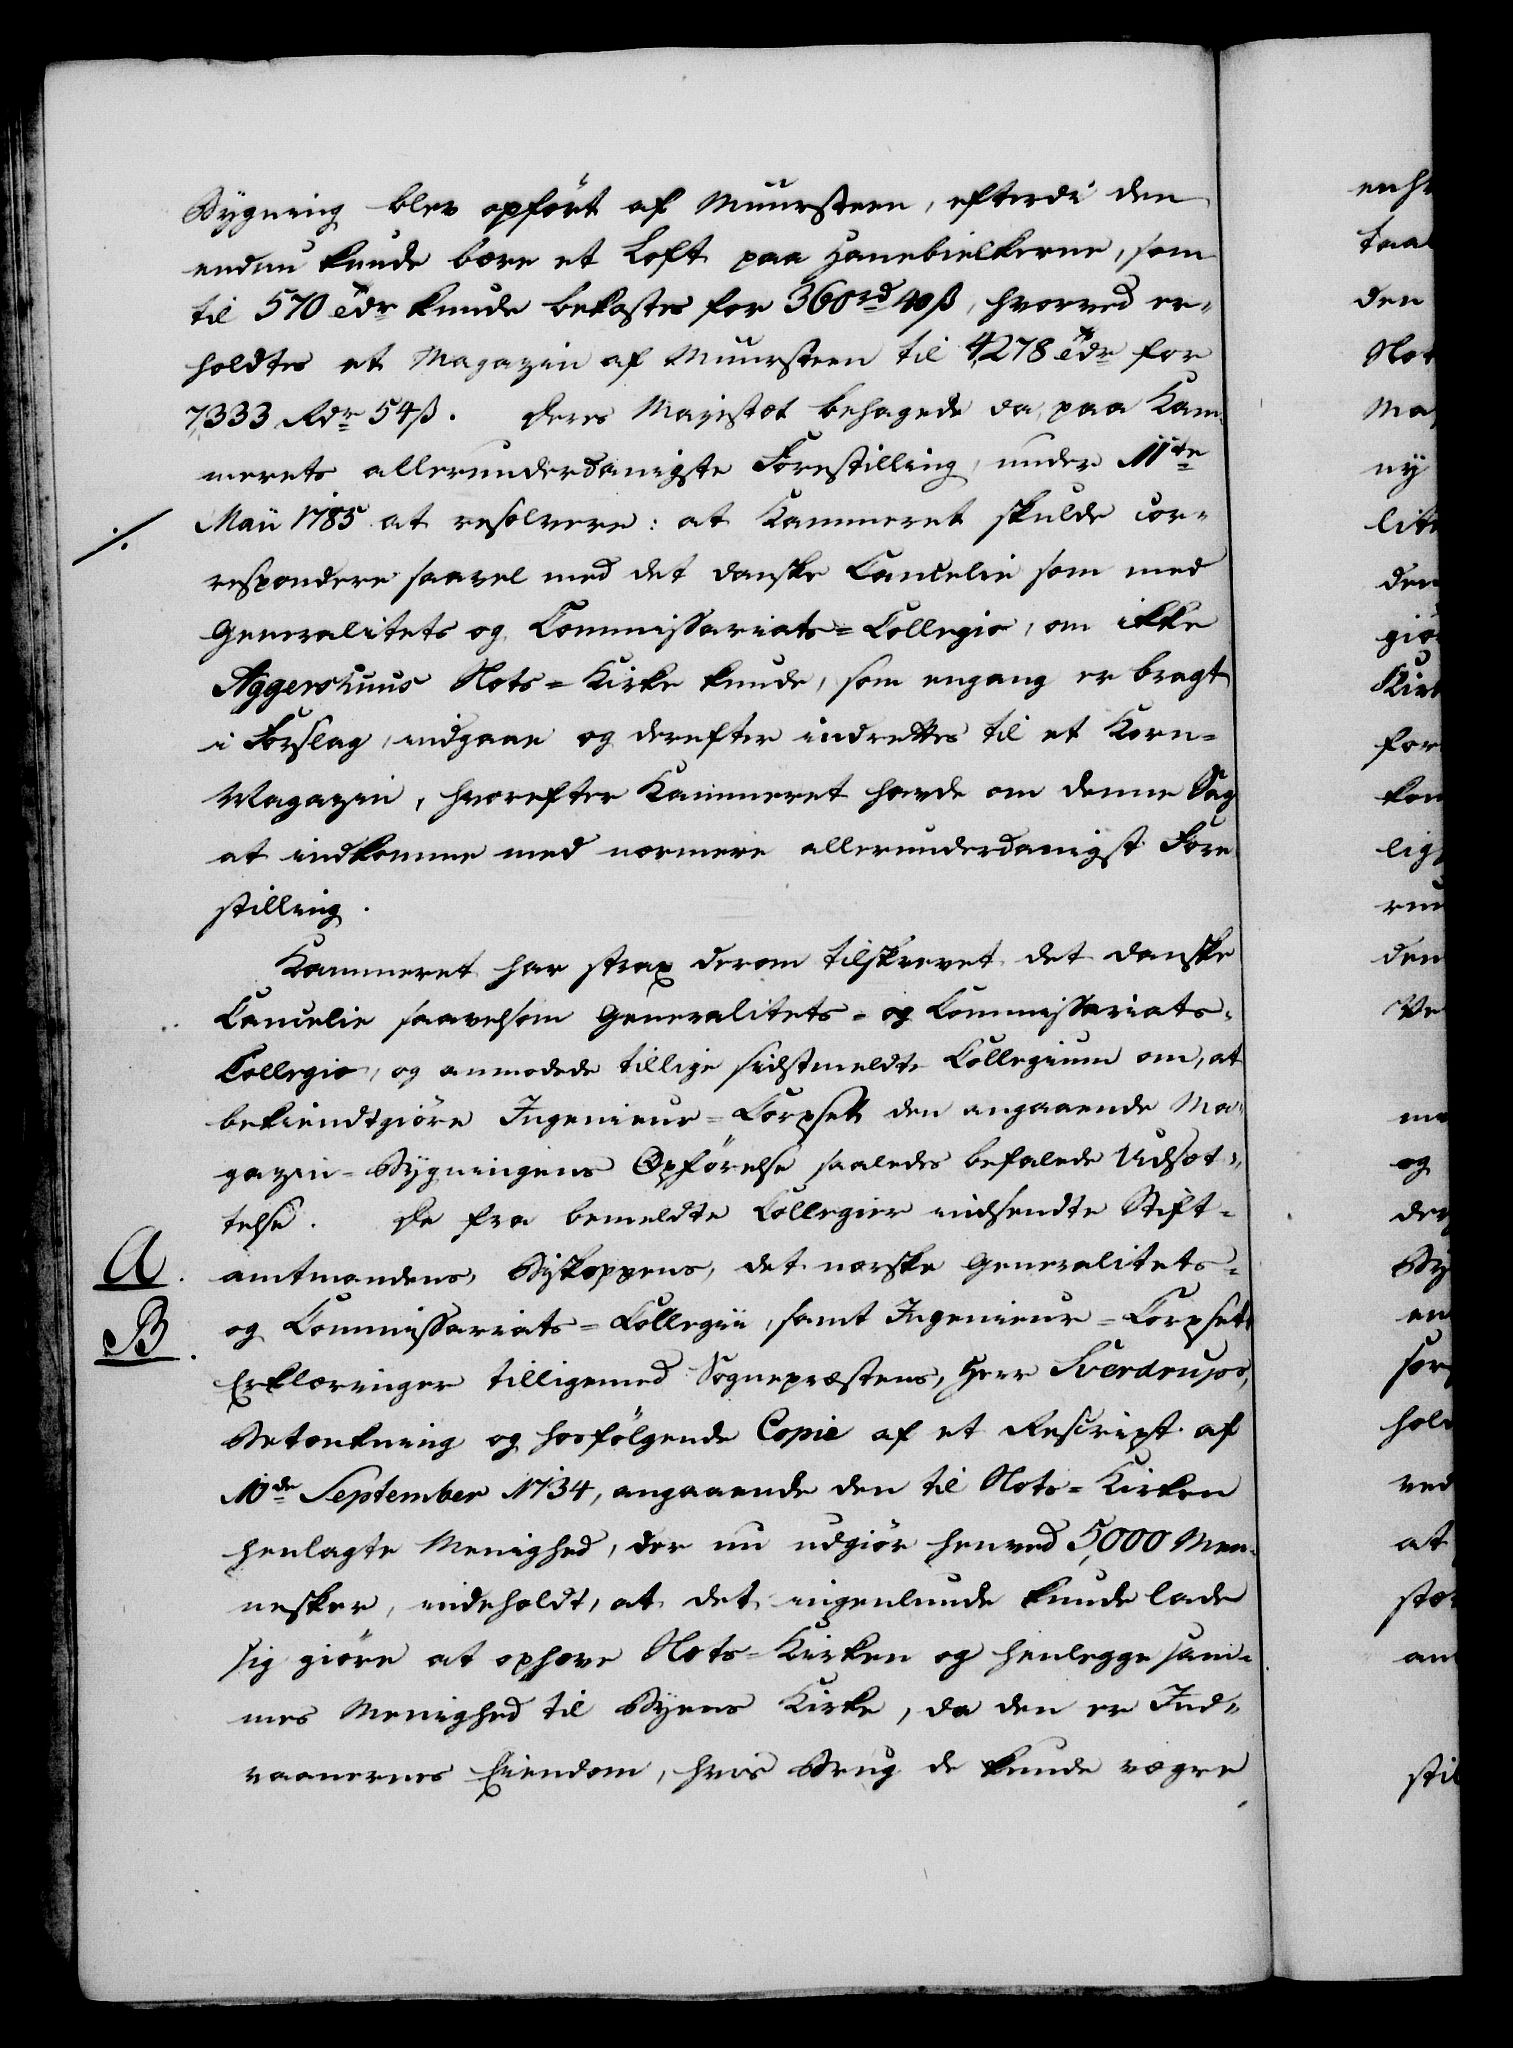 Bygning blev opført af Muursteen, efterdi den
endnu kunde bære et Loft paa Hanebielkerne, som
til 570 Tdr kunde bekostes for 360 rd 40 ß, hvorved er-
holdtes et Magazin af Muursteen til 4278 Tdr for
7333 Rdr 54 ß. Deres Majestæt behagede da, paa Kam-
merets allerunderdanigste Forestilling, under 11te
Maii 1785 at resolvere: at Kammeret skulde cor-
respondere saavel med det danske Cancelie som med
Generalitets og Commissariats-Collegio, om ikke
Aggershuus Slots-Kirke kunde, som engang er bragt
i Forslag, indgaae og derefter indrettes til et Korn-
Magazin, hvorefter Kammeret havde om denne Sag
at indkomme med nærmere allerunderdanigst Fore-
stilling.
Kammeret har strax derom tilskrevet det danske
Cancelie saavelsom Generalitets- og Commissariats-
Collegio, og anmodede tillige sidstmeldte Collegium om, at
bekiendtgiøre Ingenieur-Corpset den angaaende Ma-
gazin-Bygningens Opførelse saaledes befalede Udsæt-
telse. De fra bemeldte Collegier indsendte Stift-
A. amtmandens, Biskoppens, det norske Generalitets-
B. og Commissariats-Collegii, samt Ingenieur-Corpsets
Erklæringer tilligemed Sognepræstens, Herr Sverdrups,
Betænkning og hosfølgende Copie af et Rescript af
10de September 1734, angaaende den til Slots-Kirken
henlagte Menighed, der nu udgiør henved 5,000 Men-
nesker, indeholdt, at det ingenlunde kunde lade
sig giøre at ophæve Slots-Kirken og henlegge sam-
mes Menighed til Byens Kirke, da den er Ind-
vaanernes Eiendom, hvis Brug de kunde vægre